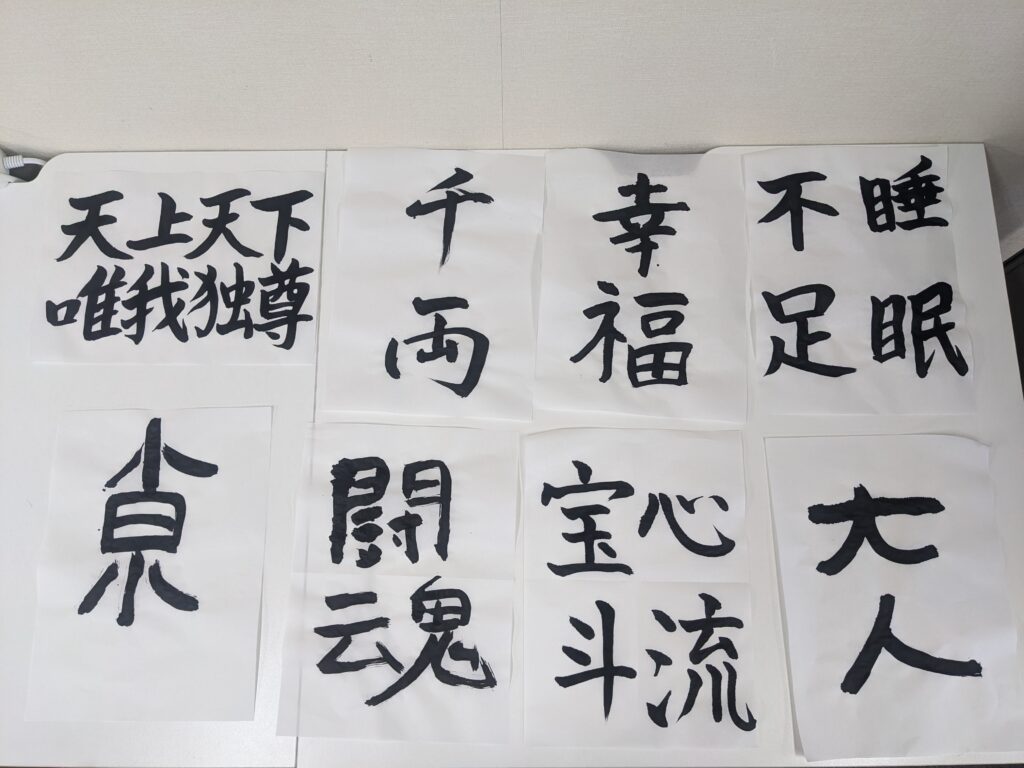 天上天下
唯我独尊
千両
幸福
睡眠
不足
闘魂
心流
宝斗
大人